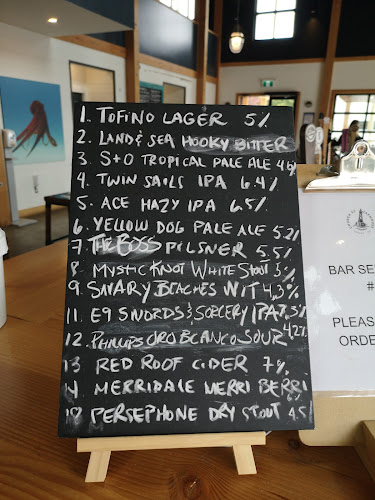 1. TOFINO LAGER 5%
2. LAND & SEA HOOKY BITTER
3. S+O TROPICAL PALE ALE 4.6%
4. TWIN SAILS IPA 6.4%
5. ACE HAZY IPA 6.5%
6. YELLOW DOG PALE ALE 5.2%
7. THE BOSS PILSNER 5.5%
8 MYSTIC KNOT WHITE STOUT 5%
9 SAVARY BEACHES WIT 4.3%
11. E9 SWORDS & SORCERY IPA 7.3%
12. PHILLIPS ORO BLANCO SOUR 4.2%
13 RED ROOF CIDER 7%
14 MERRIDALE MERRI BERRI
PERSEPHONE DRY STOUT 4.5%
BAR SE
#
PLEAS
ORDE